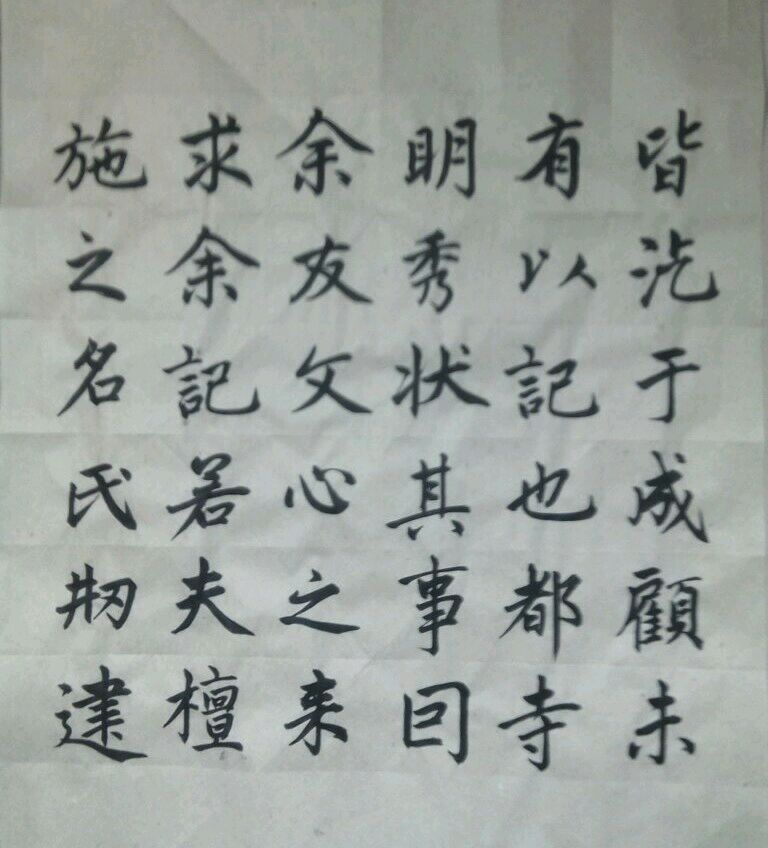 皆汔于成顧未
有以記也都寺
明秀状其事囙
余友文心之来
求余記若夫檀
施之名氏刱建